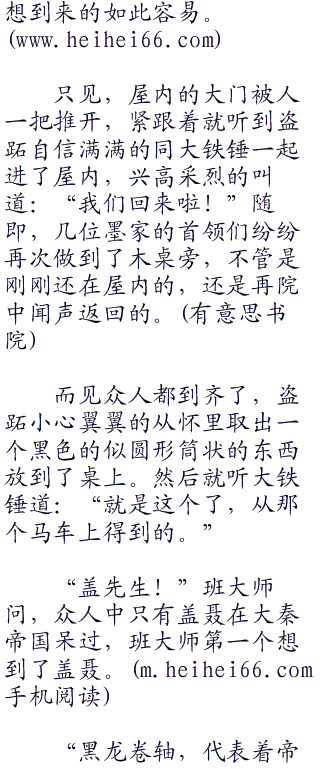 想到来的如此容易。
(www.heihei66.com)
只见，屋内的大门被人
一把推开，紧跟着就听到盗
跖自信满满的同大铁锤一起
进了屋内，兴高采烈的叫
道：“我们回来啦！”随
即，几位墨家的首领们纷纷
再次做到了木桌旁，不管是
刚刚还在屋内的，还是再院
中闻声返回的。(有意思书
院)
而见众人都到齐了，盗
跖小心翼翼的从怀里取出一
个黑色的似圆形筒状的东西
放到了桌上。然后就听大铁
锤道：“就是这个了，从那
个马车上得到的。”
“盖先生！”班大师
问，众人中只有盖聂在大秦
帝国呆过，班大师第一个想
到了盖聂。(m.heihei66.com
手机阅读)
“黑龙卷轴，代表着帝